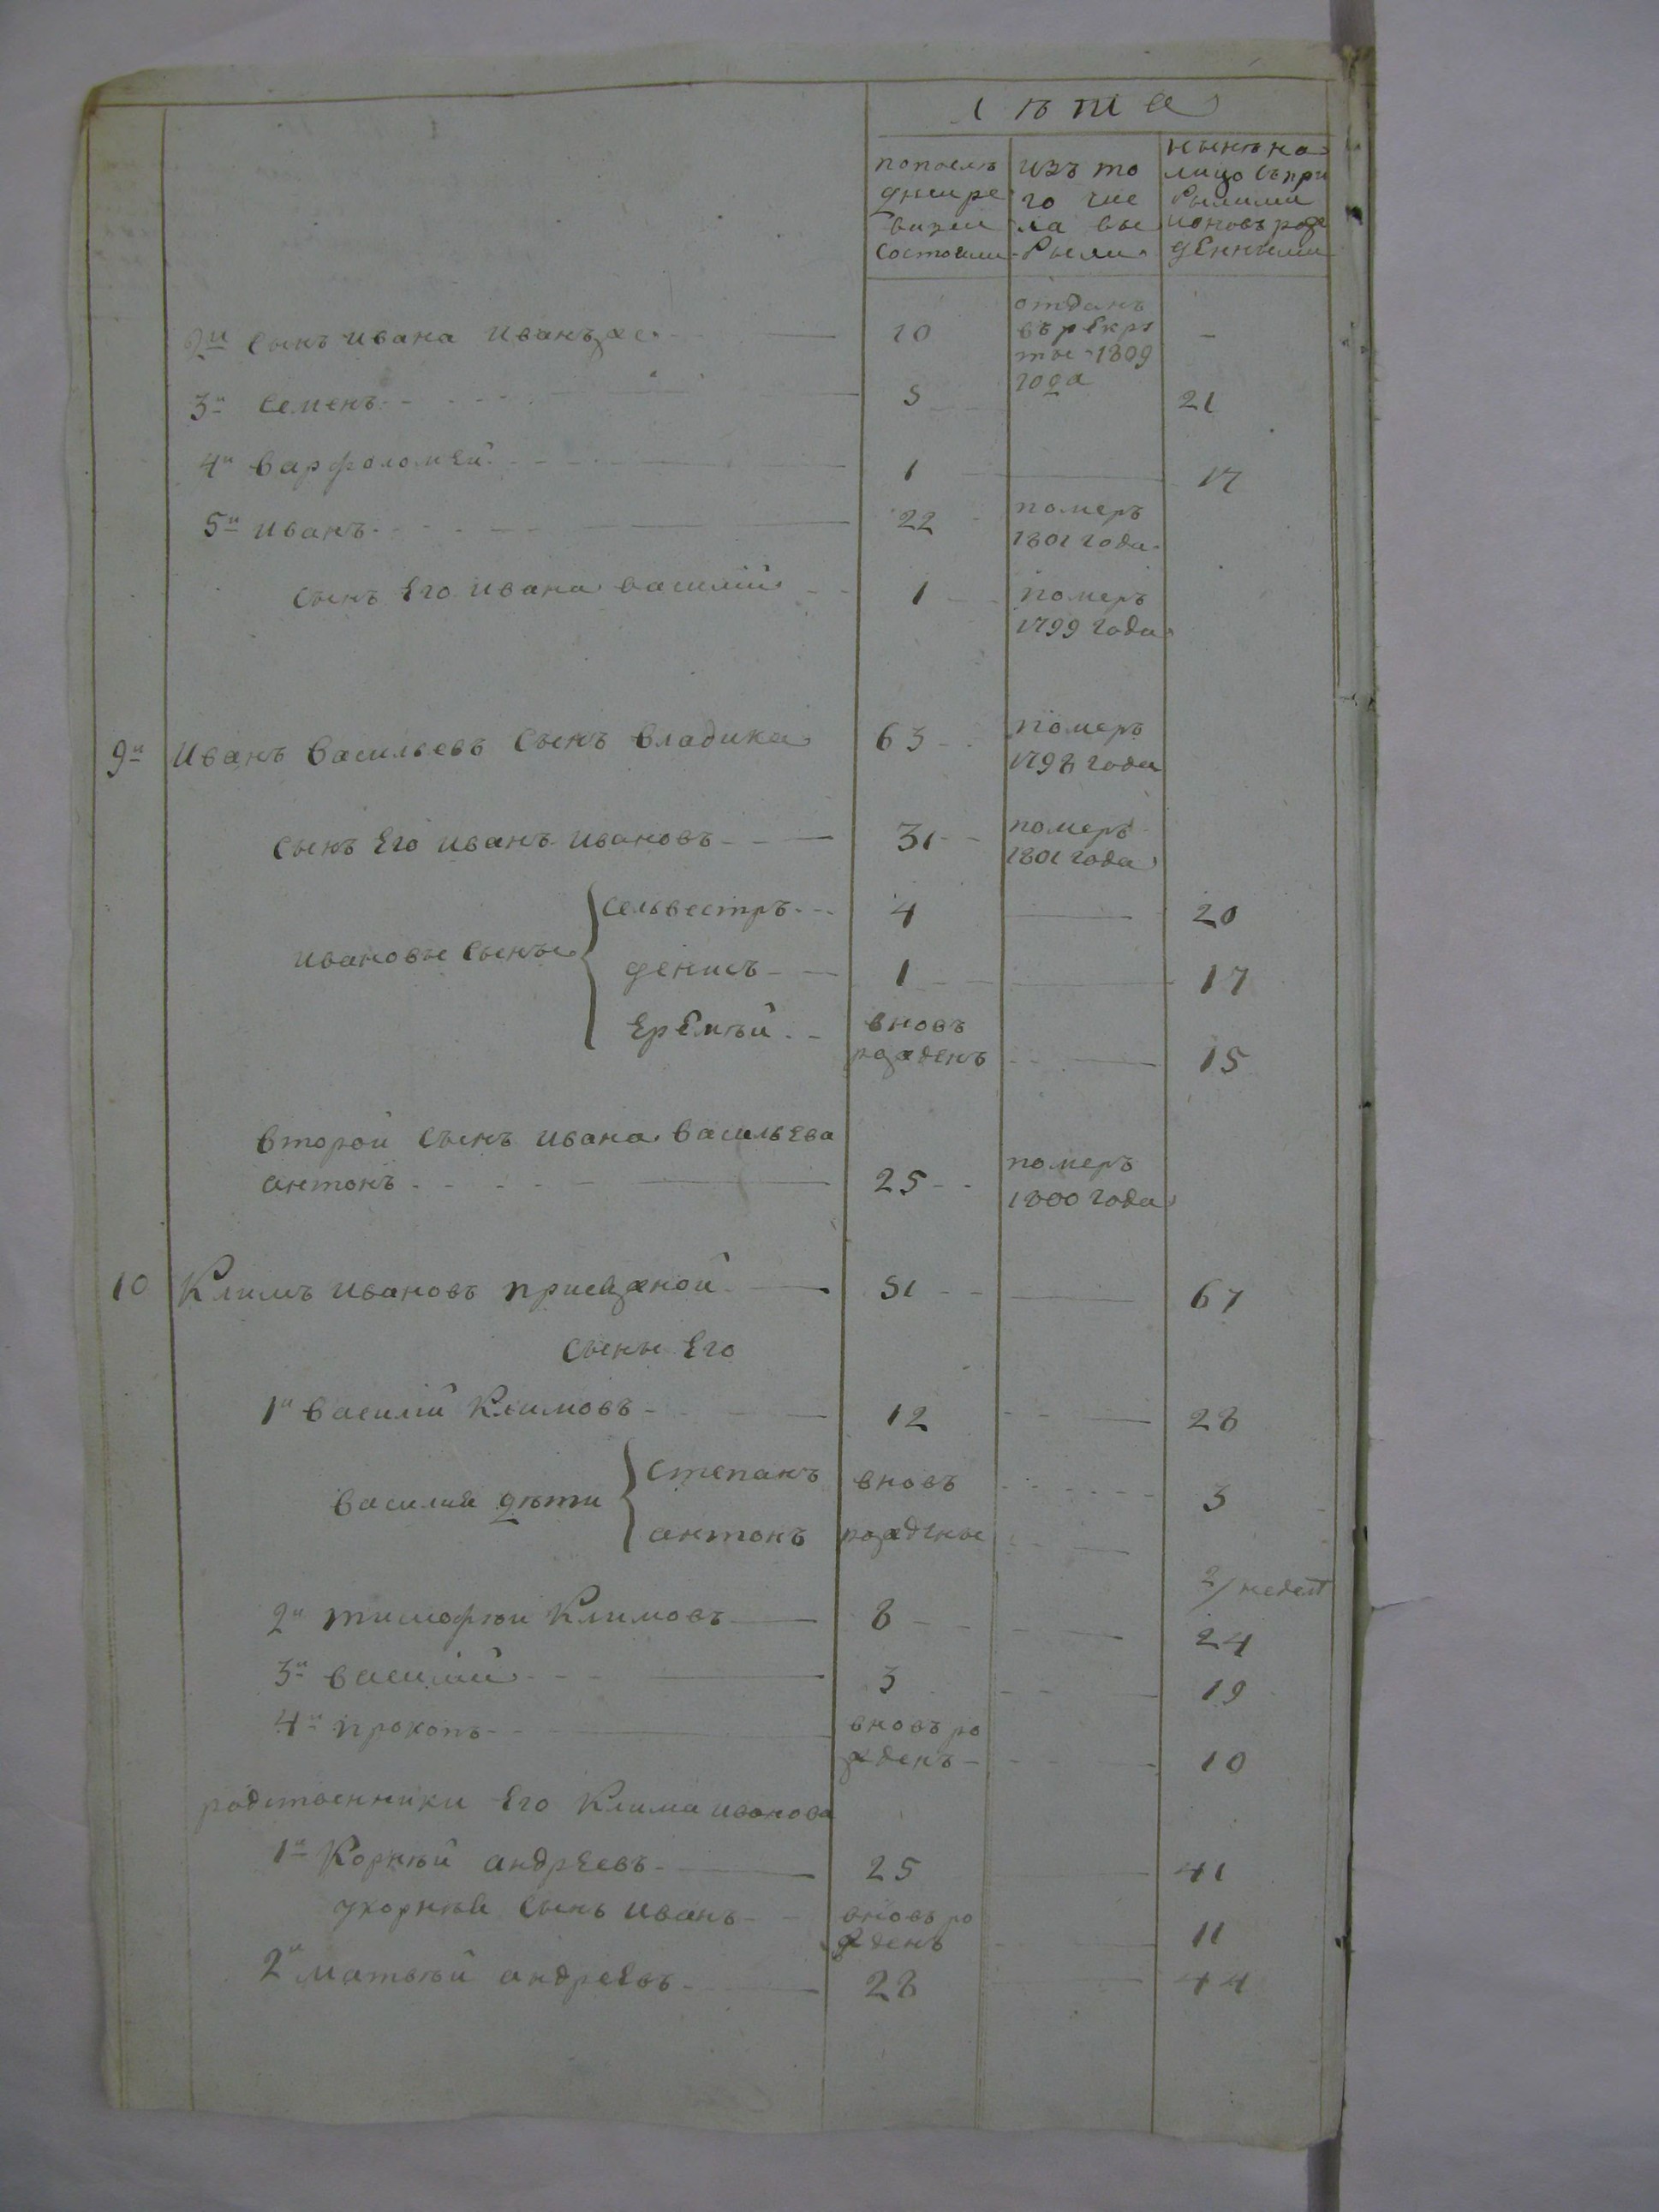 лѣта
по послѣ
дней ре
визіи
состояли
изъ то
го чис
ла вы
были
нынѣ на
лицо съ при
былыми
и новъ рож
денными
2й сынъ ивана иванъ же 10 отданъ въ рекру ты 1809 года —
3й семенъ 5 21
4й варфоломей 1 17
5й иванъ 22 померъ 1801 года
сынъ его ивана василій 1 померъ 1799 года
9й Иванъ васильевъ сынъ владика 63 померъ 1798 года
сынъ его иванъ ивановъ 31 померъ 1801 года
ивановы сыны
селвестръ 4 20
денисъ 1 17
еремѣй вновь рожденъ 15
второй сынъ ивана васильева
антонъ 25 померъ 1800 года
10 Климъ ивановъ присяжной 51 67
сыны его
1й василій Климовъ 12 28
василия дѣти
степанъ вновь 3
антонъ рождены 2/недел
2й тимофѣй Климовъ 8 24
3й василій 3 19
4й прокопъ вновь ро жденъ 10
родственники его Клима иванова
1й Корнѣй андреевъ 25 41
у корнѣя сынъ иванъ вновь ро жденъ 11
2й матвѣй андреевъ 28 44